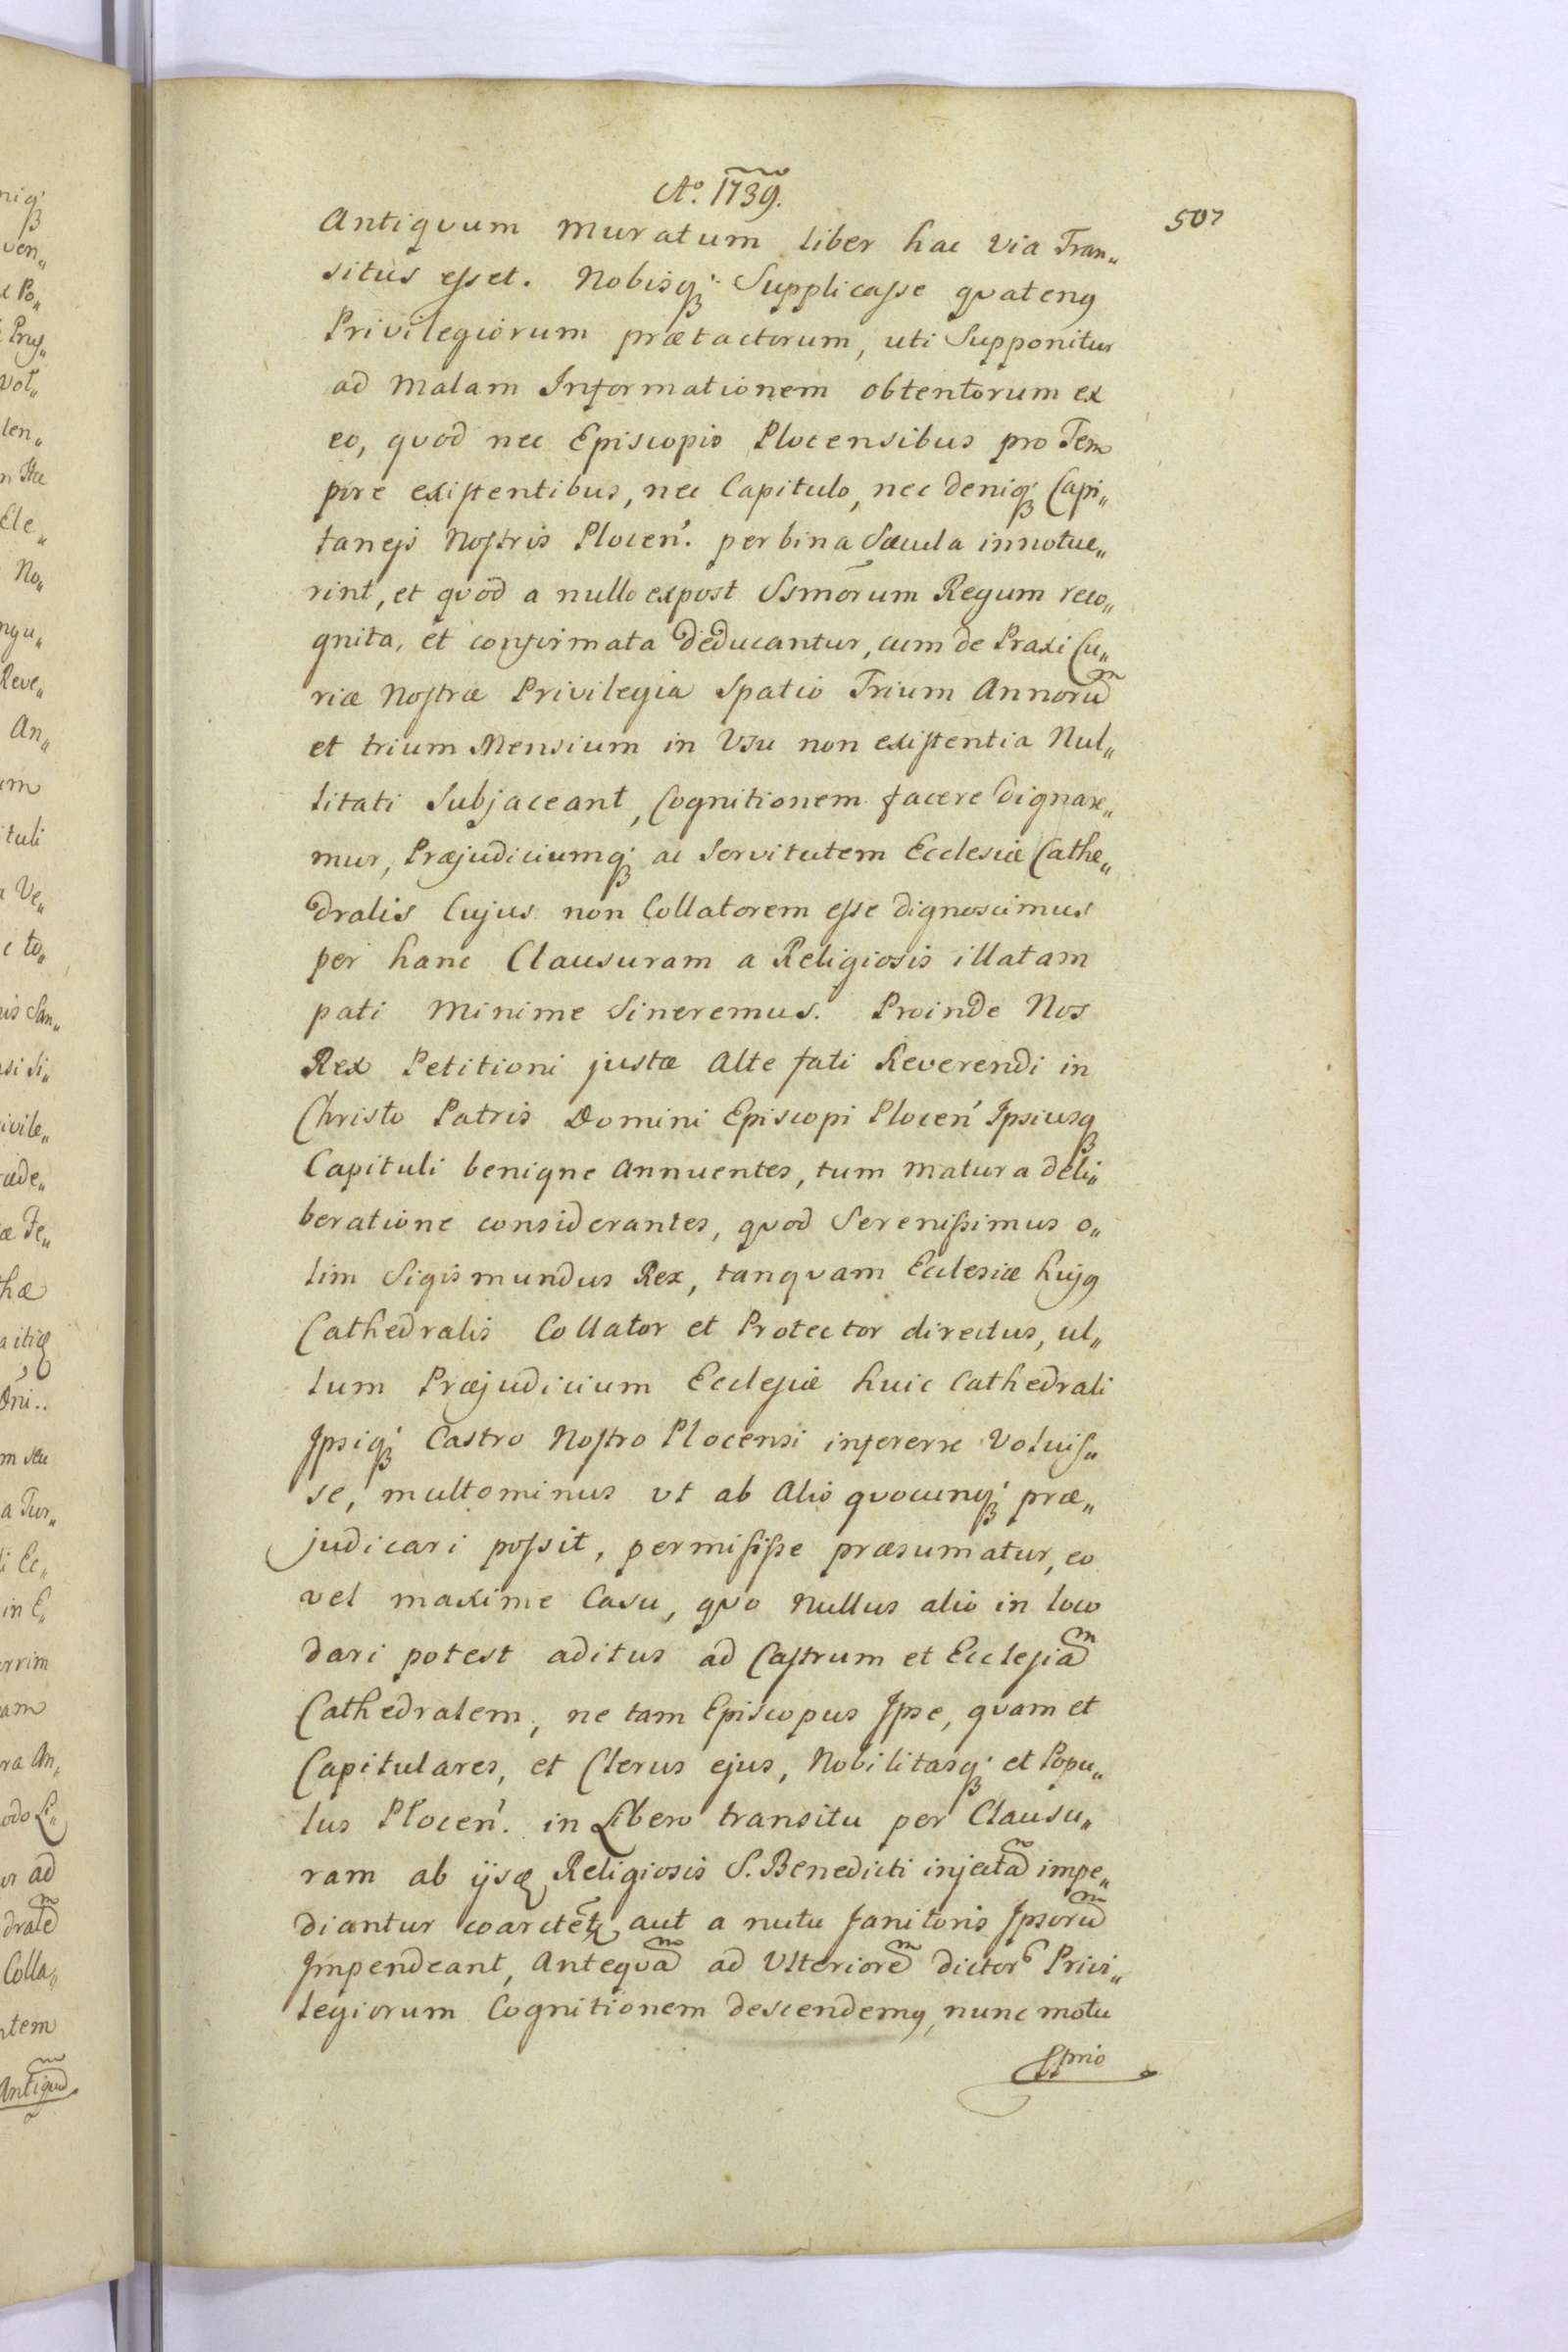 Aº. 1739.
507
Antiquum muratum liber hac via Tran„
situs esset. Nobisq; Supplicasse quatenꝰ
Privilegiorum prætactorum, uti Supponitur
ad malam Informationem obtentorum ex
eo, quod nec Episcopis Plocensibus pro Tem
pore existentibus, nec Capitulo, nec deniq; Capi„
taneis Nostris Plocen̄. per bina Sæcula innotue„
rint, et quod a nullo expost Ssmōrum Regum reco„
gnita, et confirmata deducantur, cum de Praxi Cu„
riæ Nostræ Privilegia Spatio Trium Annorū
et trium Mensium in Usu non existentia Nul„
litati Subjaceant, Cognitionem facere dignare„
mur, Præjudiciumq; ac Servitutem Ecclesiæ Cathe„
dralis Cujus non Collatorem esse dignoscimus
per hanc Clausuram a Religiosis illatam
pati Minime Sineremus. Proinde Nos
Rex Petitioni justæ Alte fati Reverendi in
Christo Patris Domini Episcopi Plocen̄ Ipsiusq;
Capituli benigne Annuentes, tum matura deli„
beratione considerantes, quod Serenissimus o„
lim Sigismundus Rex, tanquam Ecclesiæ hujꝰ
Cathedralis Collator et Protector directus, ul„
lum Præjudicium Ecclesiæ huic Cathedrali
Ipsiq; Castro Nostro Plocensi infererre Voluis„
se, multominus ut ab Alio quocunq; præ„
judicari possit, permisisse præsumatur, eo
vel maxime Casu, quo Nullus alio in loco
dari potest aditus ad Castrum et Ecclesiā
Cathedralem, ne tam Episcopus Ipse, quam et
Capitulares, et Clerus ejus, Nobilitasq; et Popu„
lus Plocen̄. in Libero transitu per Clausu„
ram ab ijsdē Religiosis S. Benedicti injectā impe„
diantur coarctēt̄ aut a nutu Janitoris Ipsorū
Impendeant, Antequā ad Ulteriorē dictor̄ Privi„
legiorum Cognitionem descendemꝰ, nunc motu